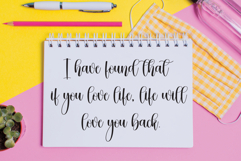 I have found that
if you love life, life will
love you back.